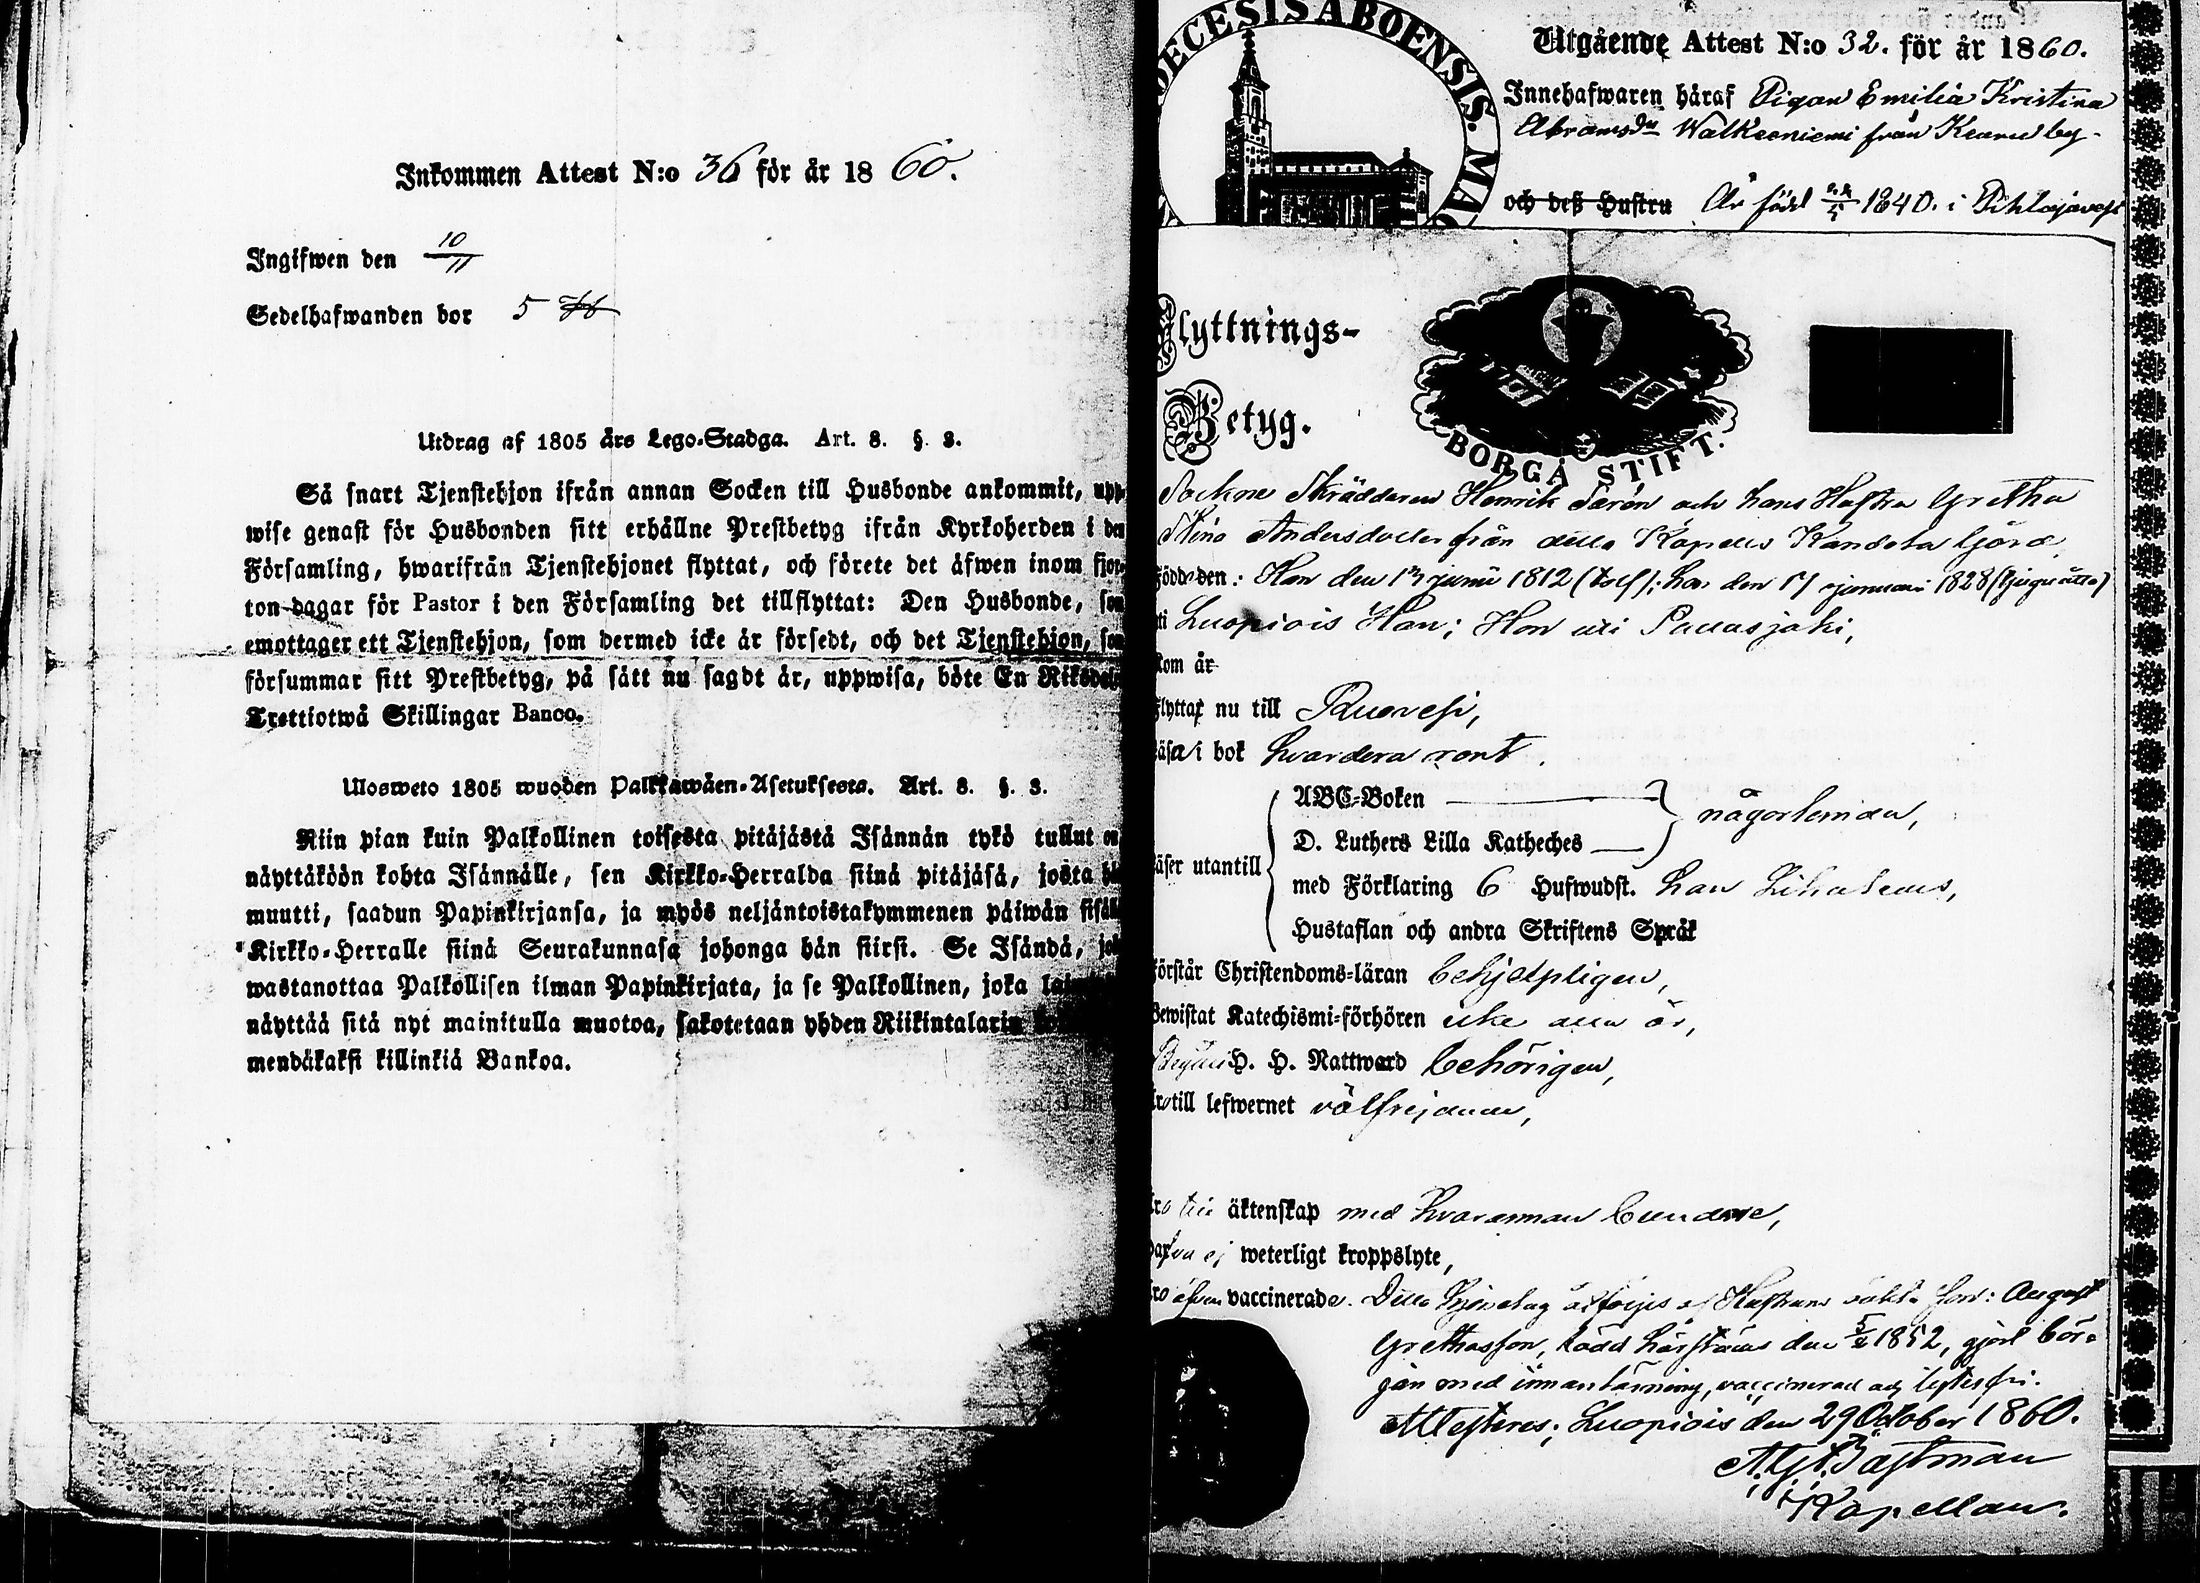 Inkommen Attest N:o 36 för år 1860.
Ingifwen den 10/11
Sedelhafwanden bor 5
Utdrag af 1805 års Lego-Stadga. Art. 8. §. 3.
Så snart Tjenstehjon ifrån annan Socken till Husbonde ankommit, upp-
wise genast för Husbonden sitt erhållne Prestbetyg ifrån Kyrkoherden i den
Församling, hwarifrån Tjenstehjonet flyttat, och förete det äfwen inom fjor-
ton dagar för Pastor i den Församling det tillflyttat: Den Husbonde, som
emottager ett Tjenstehjon, som dermed icke är försedt, och det Tjenstehjon, som
försummar sitt Prestbetyg, på sätt nu sagdt är, uppwisa, böte En Riksdaler
Trettiotwå Skillingar Banco.
Ulosweto 1805 wuoden Palkkawäen-Asetuksesta. Art. 8. §. 3.
Niin pian kuin Palkollinen toisesta pitäjästä Isännän tykö tullut on
näyttäköön kohta Isännälle, sen Kirkko-Herralda siinä pitäjäsä, josta hän
muutti, saadun Papinkirjansa, ja myös neljäntoistakymmenen päiwän sisällä
Kirkko-Herralle siinä Seurakunnasa johonga hän siirsi. Se Isändä, joka
wastanottaa Palkollisen ilman Papinkirjata, ja se Palkollinen, joka
näyttää sitä nyt mainitulla muotoa, sakotetaan yhden Riikintalarin
mendäkaksi killinkiä Bankoa.
DIOECESIS ABOENSIS. MAG
Utgående Attest N:o 32. för år 1860.
Innehafwaren häraf Pigan Emilia Kristina
Abramsdr Walkeeniemi från Keuru by
och deß Hustru Är född 1840. i Pihlajavesi
Flyttnings-
Betyg.
BORGÅ STIFT.
Sockne Skräddaren Henrik Sarén och hans Hustru Gretha
Stina Andersdotter från detta Kapells Kandola gård,
Födde den: Han den 13 junii 1812 (tolf); hon den 17 januari 1828 (tjuguåtta)
i Luopiois Han; Hon uti Sauvasjoki,
som är
flytta nu till Ruovesi,
läsa i bok hvardera rent.
ABC-Boken
D. Luthers Lilla Katheches någorlunda,
läser utantill
med Förklaring 6 Hufwudst. han
Hustaflan och andra Skriftens Språk
förstår Christendoms-läran behjelpligen,
Bewistat Katechismi-förhören icke alla år,
Begått H. H. Nattward behörigen,
Äro till lefwernet välfrejdade,
Äro till äktenskap med hvarannan bundne,
hafva ej weterligt kroppslyte,
äro äfven vaccinerade. Detta Hjonelag åtföljes af Hustruns oäkta son: August
Grethasson, född härstädes den 5/2 1852, gjort bör-
jan med innanläsning, vaccinerad och lytesfri.
Attesteres; Luopiois den 29 October 1860.
Kapellan.